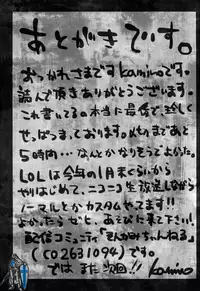 あとがきでいす。
おつかれさまですkaminoです。
読んで頂きありがとうございます。
これ書いてるの本当に最後で珍しく
せっぱまっております。〆切まであと
5時間…なんとかなりそうでよかった。
LOLは今年の1月末くらいから
やりはじめて、ニコニコ生放送しながら
ノーマルとかカスタムやってます!!
よかったらぜひ、あそびに来て下さい!
配信コミュニティ「そんがみちゃんねる」
(co2631094)です。
では また 次回!!
kamino